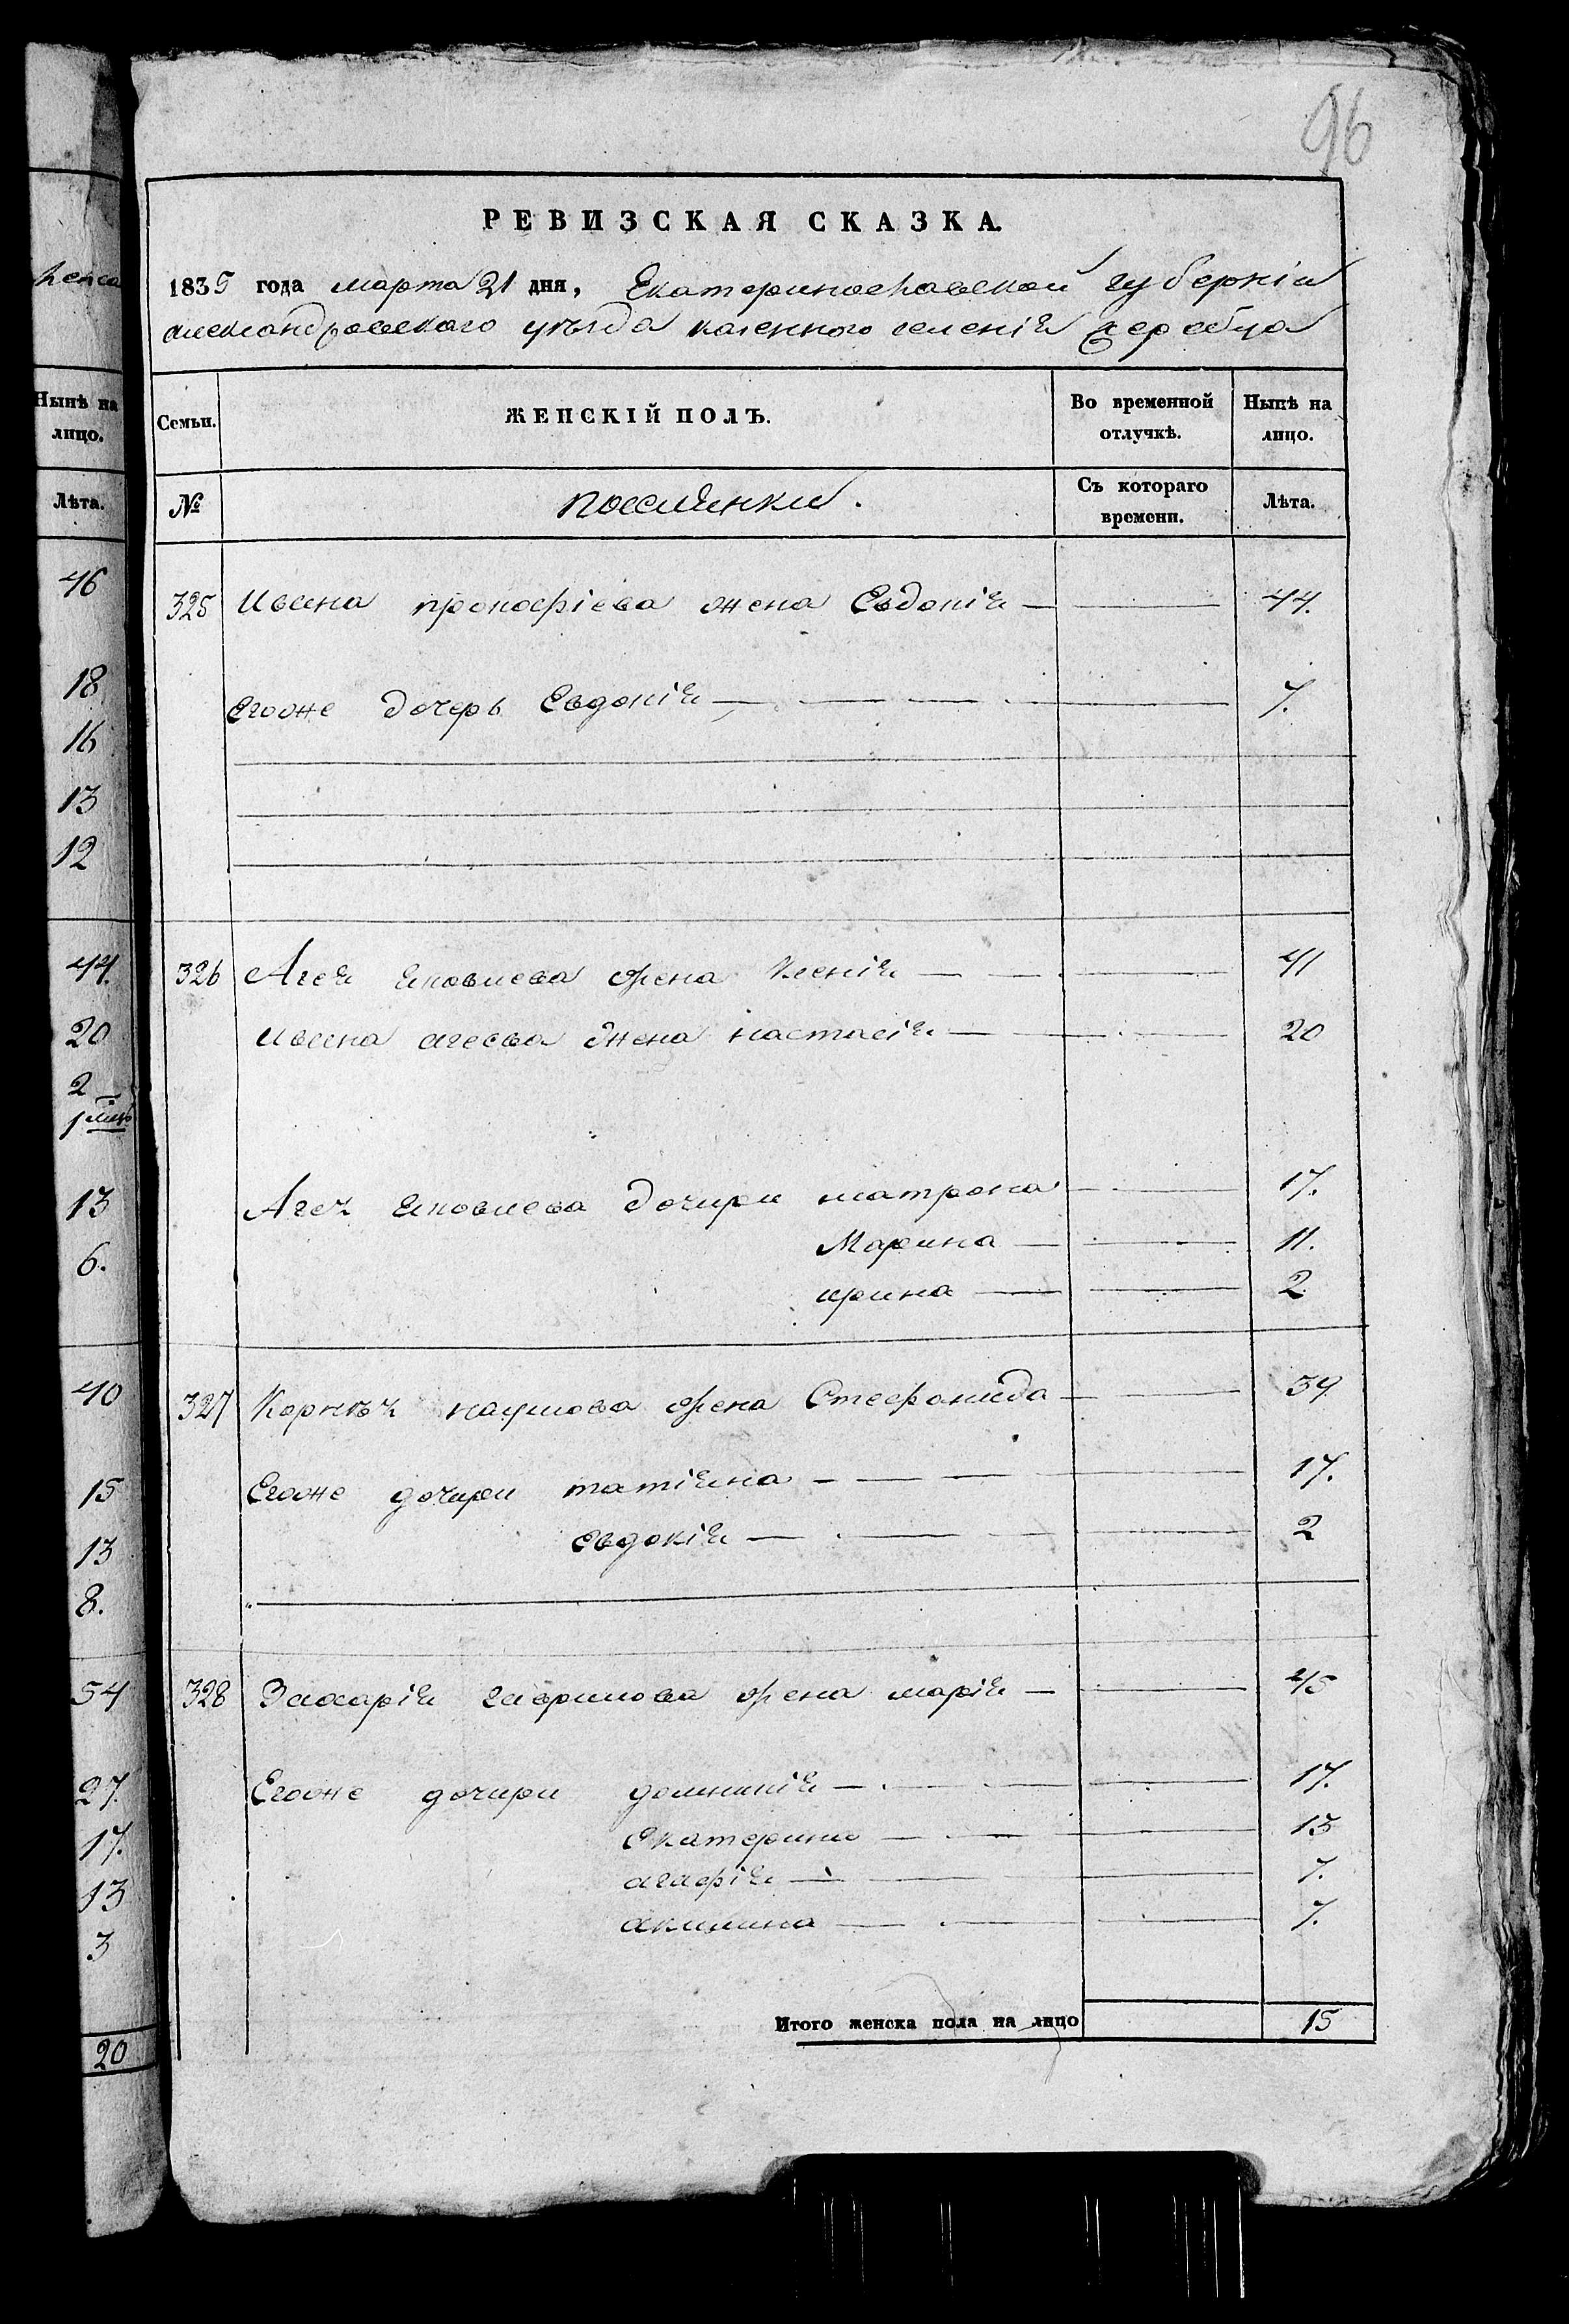 96
РЕВИЗСКАЯ СКАЗКА.
1835 года марта 21 дня, Екатеринославской губерніи
александровского уѣзда казенного селенія жеребца
Нынѣ на лицо.
Лѣта.
46
18
16
13
12
44.
20
2
1
13
6.
40
15
13
8.
54
27.
17.
13
3
20
Семьи. ЖЕНСКІЙ ПОЛЪ. Во временной отлучкѣ. Нынѣ на лицо.
№ поселянки. Съ котораго времени. Лѣта.
325 Ивана прокофіева жена Евдокія 44.
Егоже дочерь Евдокія 7.
326 Агея яковлева жена Ксенія 41
Ивана агеева жена настасія 20
Агея яковлева дочири матрона 17.
Марина 11.
ирина 2
327 Корнѣя наумова жена Стефанида 39
Егоже дочири татіяна 17.
евдокія 2
328 Захарія гаврилова жена марія 45
Егоже дочири домникія 17.
Екатерина 13
агафія 7.
акилина 7.
Итого женска пола на лицо 15